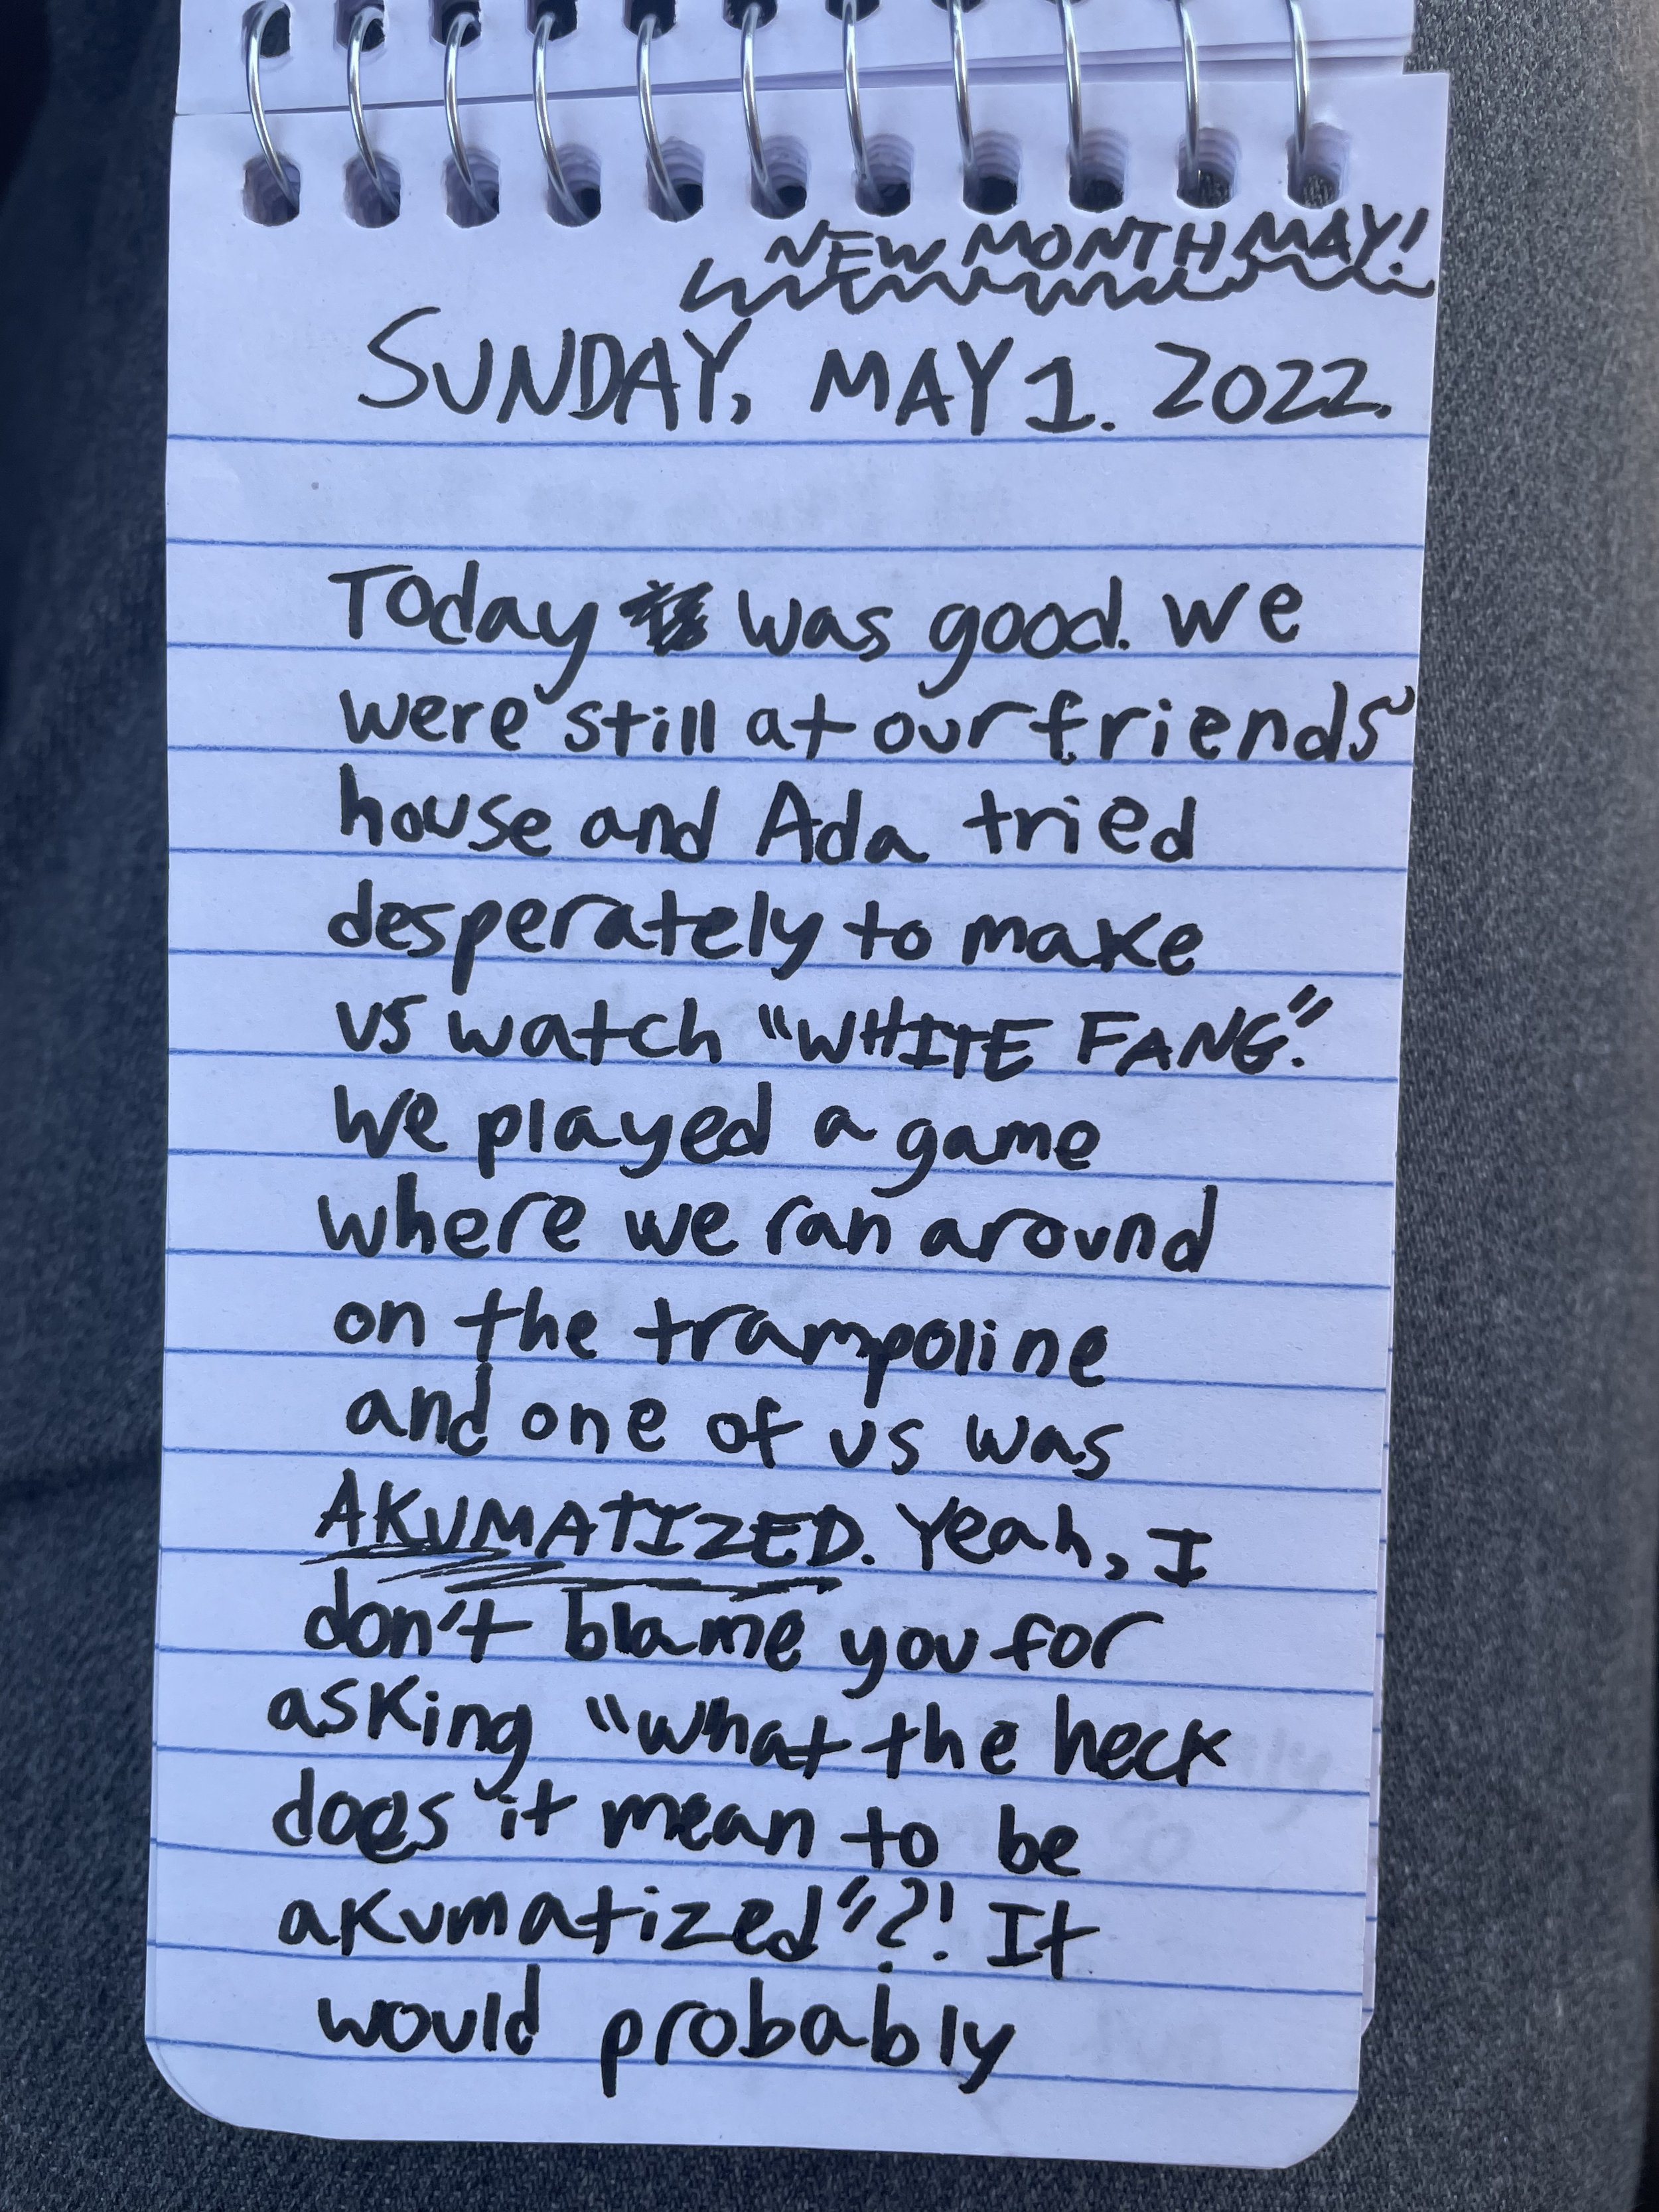 NEW MONTH MAY!
SUNDAY, MAY 1. 2022.
Today was good. We
were still at our friends'
house and Ada tried
desperately to make
us watch "WHITE FANG."
We played a game
where we ran around
on the trampoline
and one of us was
AKUMATIZED. Yeah, I
don't blame you for
asking "what the heck
does it mean to be
akumatized"?! It
would probably